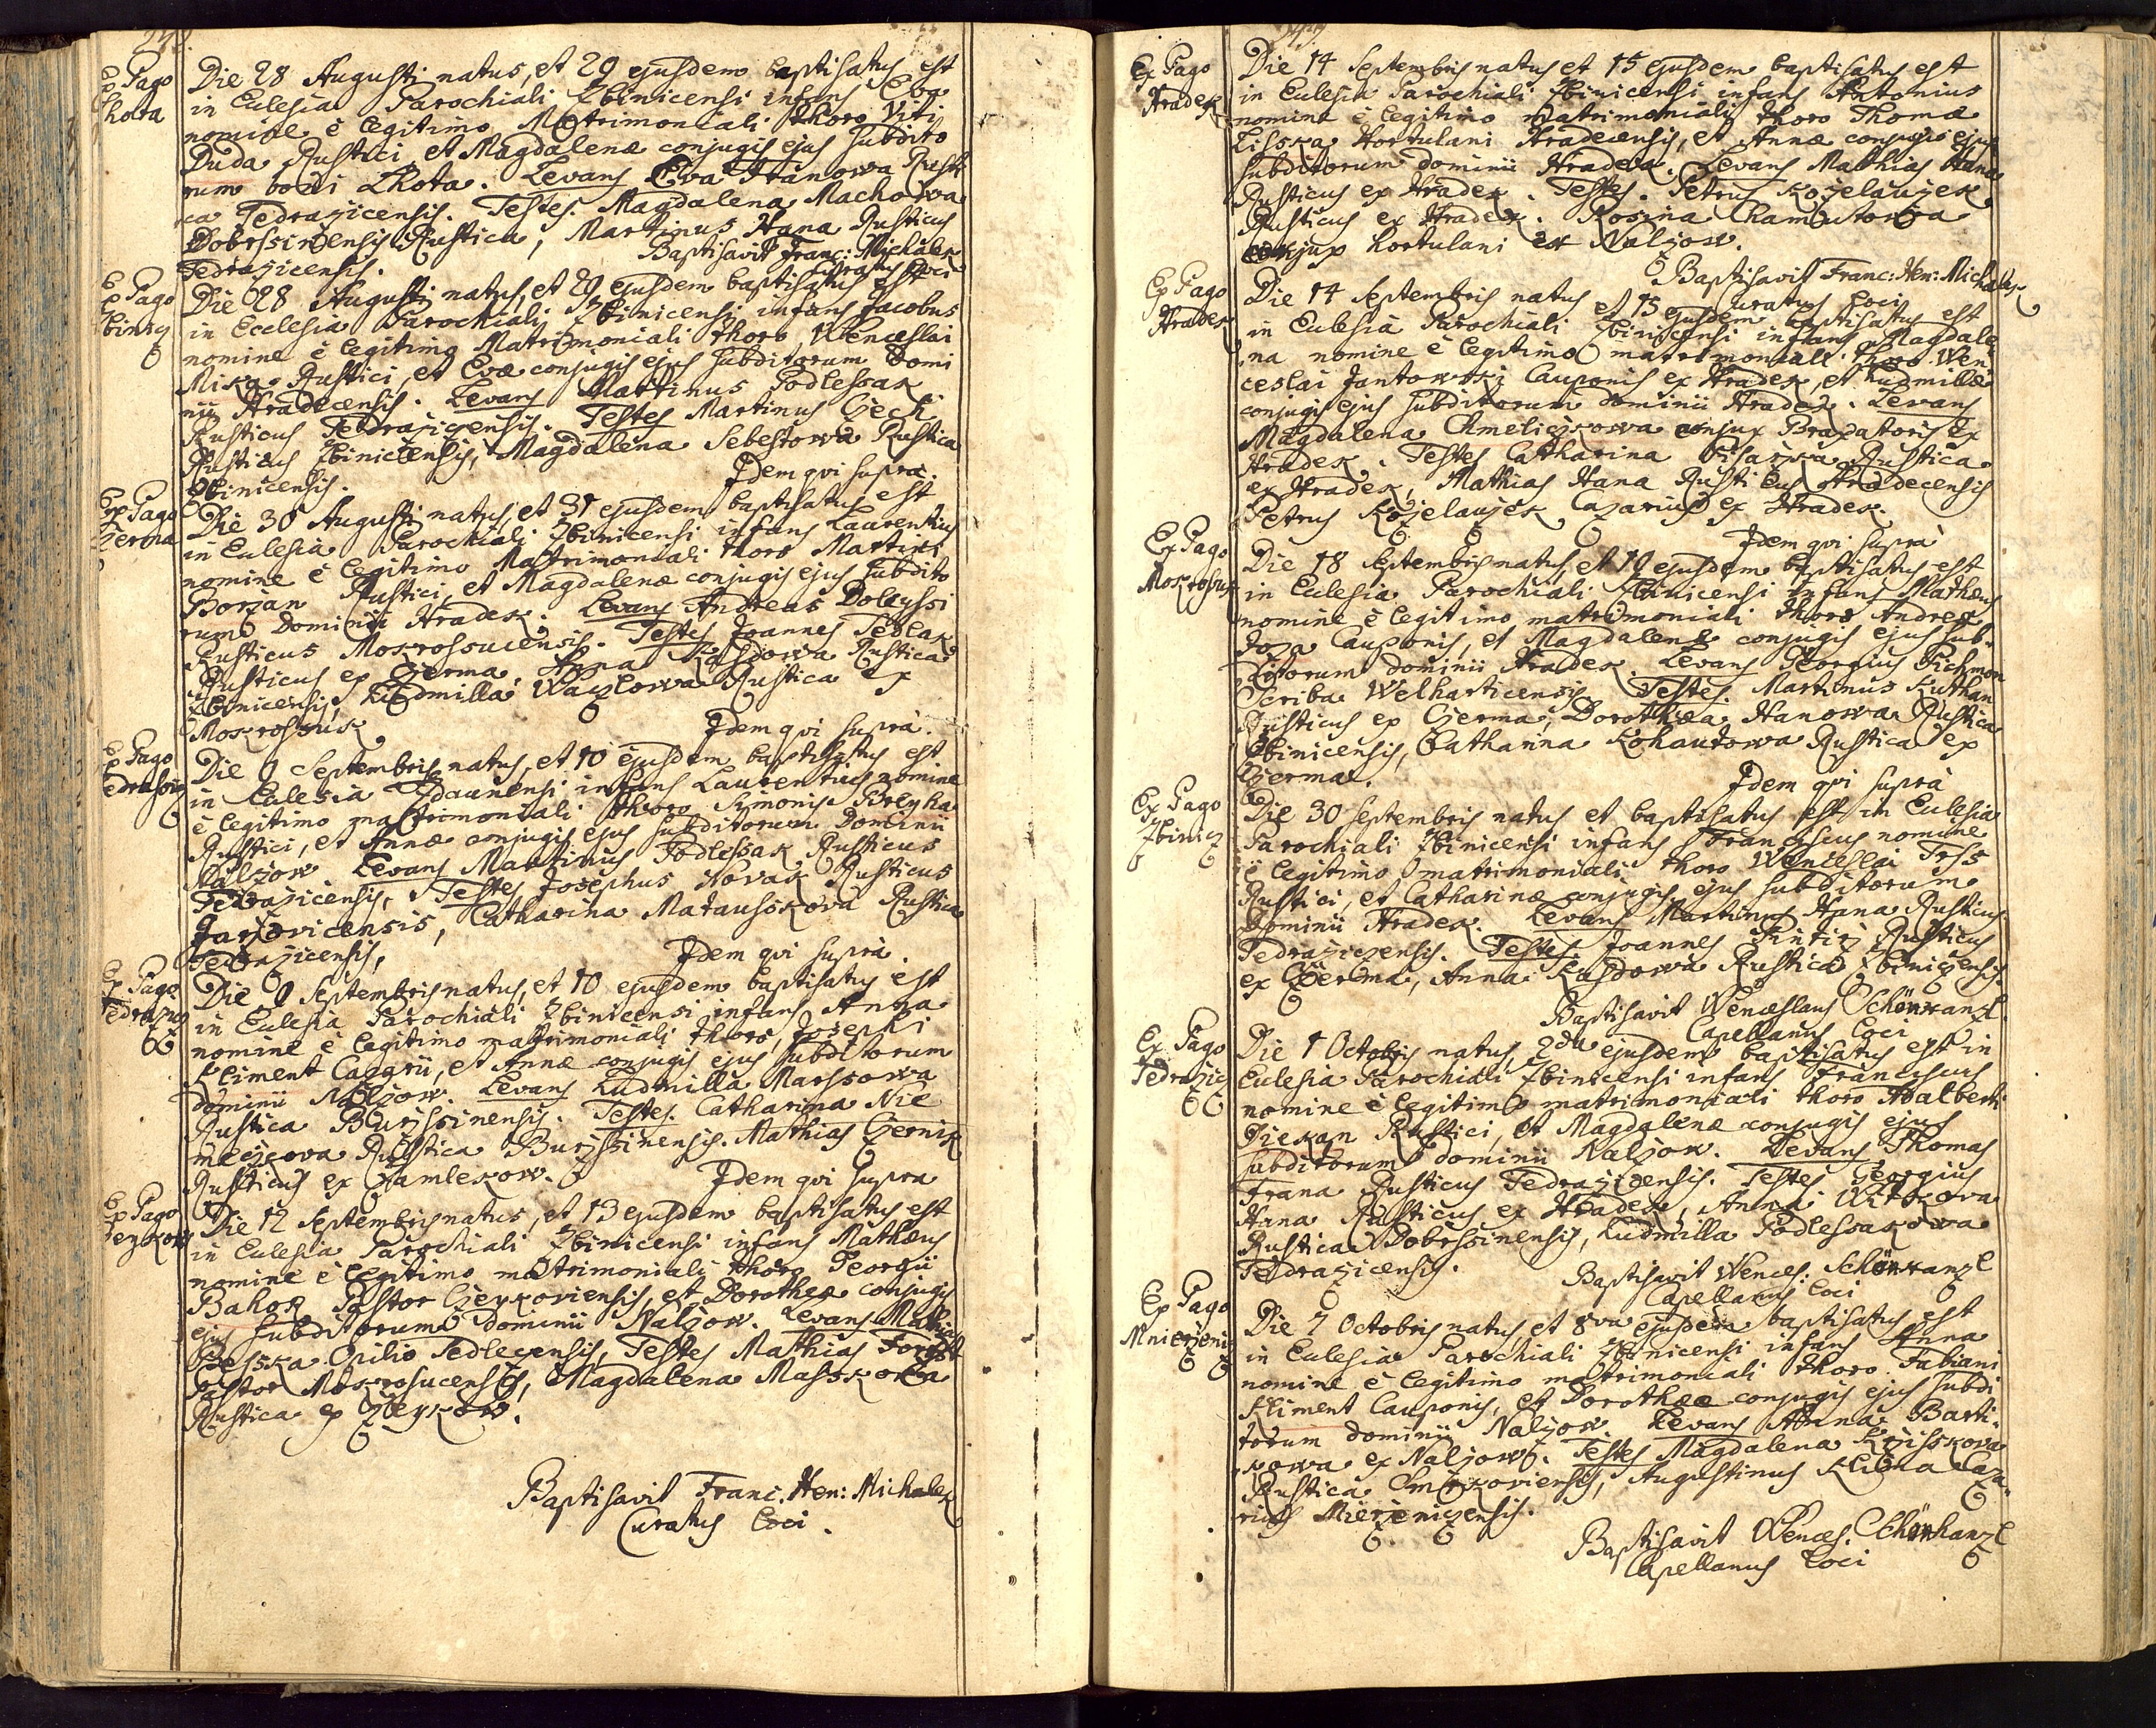 Ex Pago
Lhota
Die 28 Augusti natus, et 29 ejusdem baptisatus est
in Eclesia Parochiali Zbinicensi infans Eva
nomine è legitimo Matrimoniali thoro Viti
Duda Rustici, et Magdalenæ conjugis ejus subdito
rum boni Lhota. Levans Eva Hanowa Rusti
ca Tedrazicensis. Testes. Magdalena Machowa
Dobrssinensis Rustica, Martinus Hana Rusticus
Tedrazicensis. Baptisavit Franc: Michalek
Curatus Loci
Ex Pago
Zbinicz
Die 28 Augusti natus, et 29 ejusdem baptisatus est
in Ecclesia Parochiali Zbinicensi infans Jacobus
nomine è legitimo Matrimoniali thoro Wenceslai
Mika Rustici, et Evæ conjugis ejus subditorum Domi
nii Hradecensis. Levans Martinus Podlessak
Rusticus Tedrazicensis. Testes Martinus Czech
Rusticus Zbinicensis, Magdalena Sebestowa Rustica
Zbinicensis. Idem qvi supra.
Ex Pago
Czerma
Die 30 Augusti natus, et 31 ejusdem baptisatus est
in Eclesia Parochiali Zbinicensi infans Laurentius
nomine è legitimo Matrimoniali thoro Martini
Borzan Rustici, et Magdalenæ conjugis ejus subdito
rum Dominii Hradek. Levans Andreas Doleyssi
Rusticus Mokrossucensis. Testes Joannes Sedlak
Rusticus ex Czerma, Anna Kuzdowa Rustica
Zbinicensis, Ludmilla Waczlowa Rustica ex
Mokrossuk Idem qvi supra.
Ex Pago
Tedrasicz
Die 9 Septembris natus, et 10 ejusdem baptisatus est
in Eclesia Zdaunensi infans Laurentius nomine
è legitimo matrimoniali thoro Simonis Breyha
Rustici, et Annæ conjugis ejus subditorum Dominii
Nalzow. Levans Martinus Podlessak Rusticus
Tedrazicensis, Testes Josephus Novak Rusticus
Jarzovicensis, Catharina Matausskova Rustica
Tedrazicensis, Idem qvi supra.
Ex Pago
Tedrazicz
Die 9 Septembris natus, et 10 ejusdem baptisatus est
in Eclesia Parochiali Zbinicensi infans Anna
nomine è legitimo matrimoniali thoro, Josephi
Kliment Cazarii, et Annæ conjugis ejus subditorum
dominii Nalzow. Levans Ludmilla Marssowa
Rustica Burzssinensis. Testes. Catharina Nie
meczkova Rustica Burzssinensis. Mathias Czernik
Rusticus ex Zamlekow. Idem qvi supra
Ex Pago
Czeykow
Die 12 Septembris natus, et 13 ejusdem baptisatus est
in Eclesia Parochiali Zbinicensi infans Mathæus
nomine è legitimo matrimoniali thoro Georgii
Bahok Pastor Czeykoviensis, et Dorotheæ conjugis
ejus subditorum dominii Nalzow. Levans Mathias
Besska Opilio Sedlecensis, Testes Mathias Forist
Pastor Mokrosucensis, Magdalena Masskova
Rustica ex Czeykow.
Baptisavit Franc. Hen: Michalek
Curatus Loci.
Ex Pago
Hradek
Die 14 Septembris natus et 15 ejusdem baptisatus est
in Eclesia Parochiali Zbinicensi infans Antonius
nomine è legitimo matrimoniali thoro Thomæ
Lisska Hortulani Hradecensis, et Annæ conjugis ejus
subditorum dominii Hradek. Levans Mathias Hana
Rusticus ex Hradek. Testes. Petrus Kozelauzek
Rusticus ex Hradek. Rosina Chamutowa
conjux hortulani ex Nalzow.
Baptisavit Franc: Hen: Michalek
Curatus Loci
Ex Pago
Hradek
Die 14 Septembris natus et 15 ejusdem baptisatus est
in Eclesia Parochiali Zbinicensi infans Magdale
na nomine è legitimo matrimoniali thoro Wen
ceslai Jantowski Cauponis ex Hradek, et Ludmillæ
conjugis ejus subditorum dominii Hradek. Levans
Magdalena Chmeliczkowa conjux Braxatoris ex
Hradek. Testes Catharina Pisarzka Rustica
ex Hradek, Mathias Hana Rusticus Hradecensis
Petrus Kozelauzek Cazarius ex Hradek.
Idem qvi supra
Ex Pago
Mokrosuk
Die 18 Septembris natus, et 19 ejusdem baptisatus est
in Eclesia Parochiali Zbinicensi infans Mathæus
nomine è legitimo matrimoniali thoro Andreæ
Joza Cauponis, et Magdalenæ conjugis ejus sub-
ditorum dominii Hradek. Levans Georgius Pichmon
Scriba Welharticensis Testes. Martinus Kuthan
Rusticus ex Czerma, Dorothæa Hanowa Rustica
Zbinicensis, Catharina Kohautowa Rustica ex
Czerma. Idem qvi supra
Ex Pago
Zbinicz
Die 30 Septembris natus et baptisatus est in Eclesia
Parochiali Zbinicensi infans Franciscus nomine
è legitimo matrimoniali thoro Wenceslai Trss
Rustici, et Catharinæ conjugis ejus subditorum
Dominii Hradek. Levans Martinus Hana Rusticus
Tedraziczensis. Testes. Joannes Pintirz Rusticus
ex Czerma, Anna Kuzdowa Rustica Zbiniczensis.
Baptisavit Wenceslaus Schönhanzl
Capellanus Loci
Ex Pago
Tedrazic
Die 1 Octobris natus, 2da ejusdem baptisatus est in
Eclesia Parochiali Zbinicensi infans Franciscus
nomine è legitimo matrimoniali thoro Adalberti
Diekan Rustici, et Magdalenæ conjugis ejus
subditorum dominii Nalzow. Levans Thomas
Frana Rusticus Tedrazicensis. Testes Georgius
Hana Rusticus ex Hradek, Anna Witkova
Rustica Dobrssinensis, Ludmilla Podlessakowa
Tedrazicensis. Baptisavit Wences: Schönhanzl
Capellanus Loci
Ex Pago
Mnierzenicz
Die 7 Octobris natus, et 8va ejusdem baptisatus est
in Eclesia Parochiali Zbinicensi infans Anna
nomine è legitimo matrimoniali thoro Fabiani
Kliment Cauponis, et Dorothææ conjugis ejus subdi
torum dominii Nalzow. Levans Anna Barti-
kowa ex Nalzow. Testes Magdalena Krzisskova
Rustica Smrkoviensis, Augustinus Klima Caza-
rius Mierzeniczensis.
Baptisavit Wences. Schönhanzl
Capellanus Loci